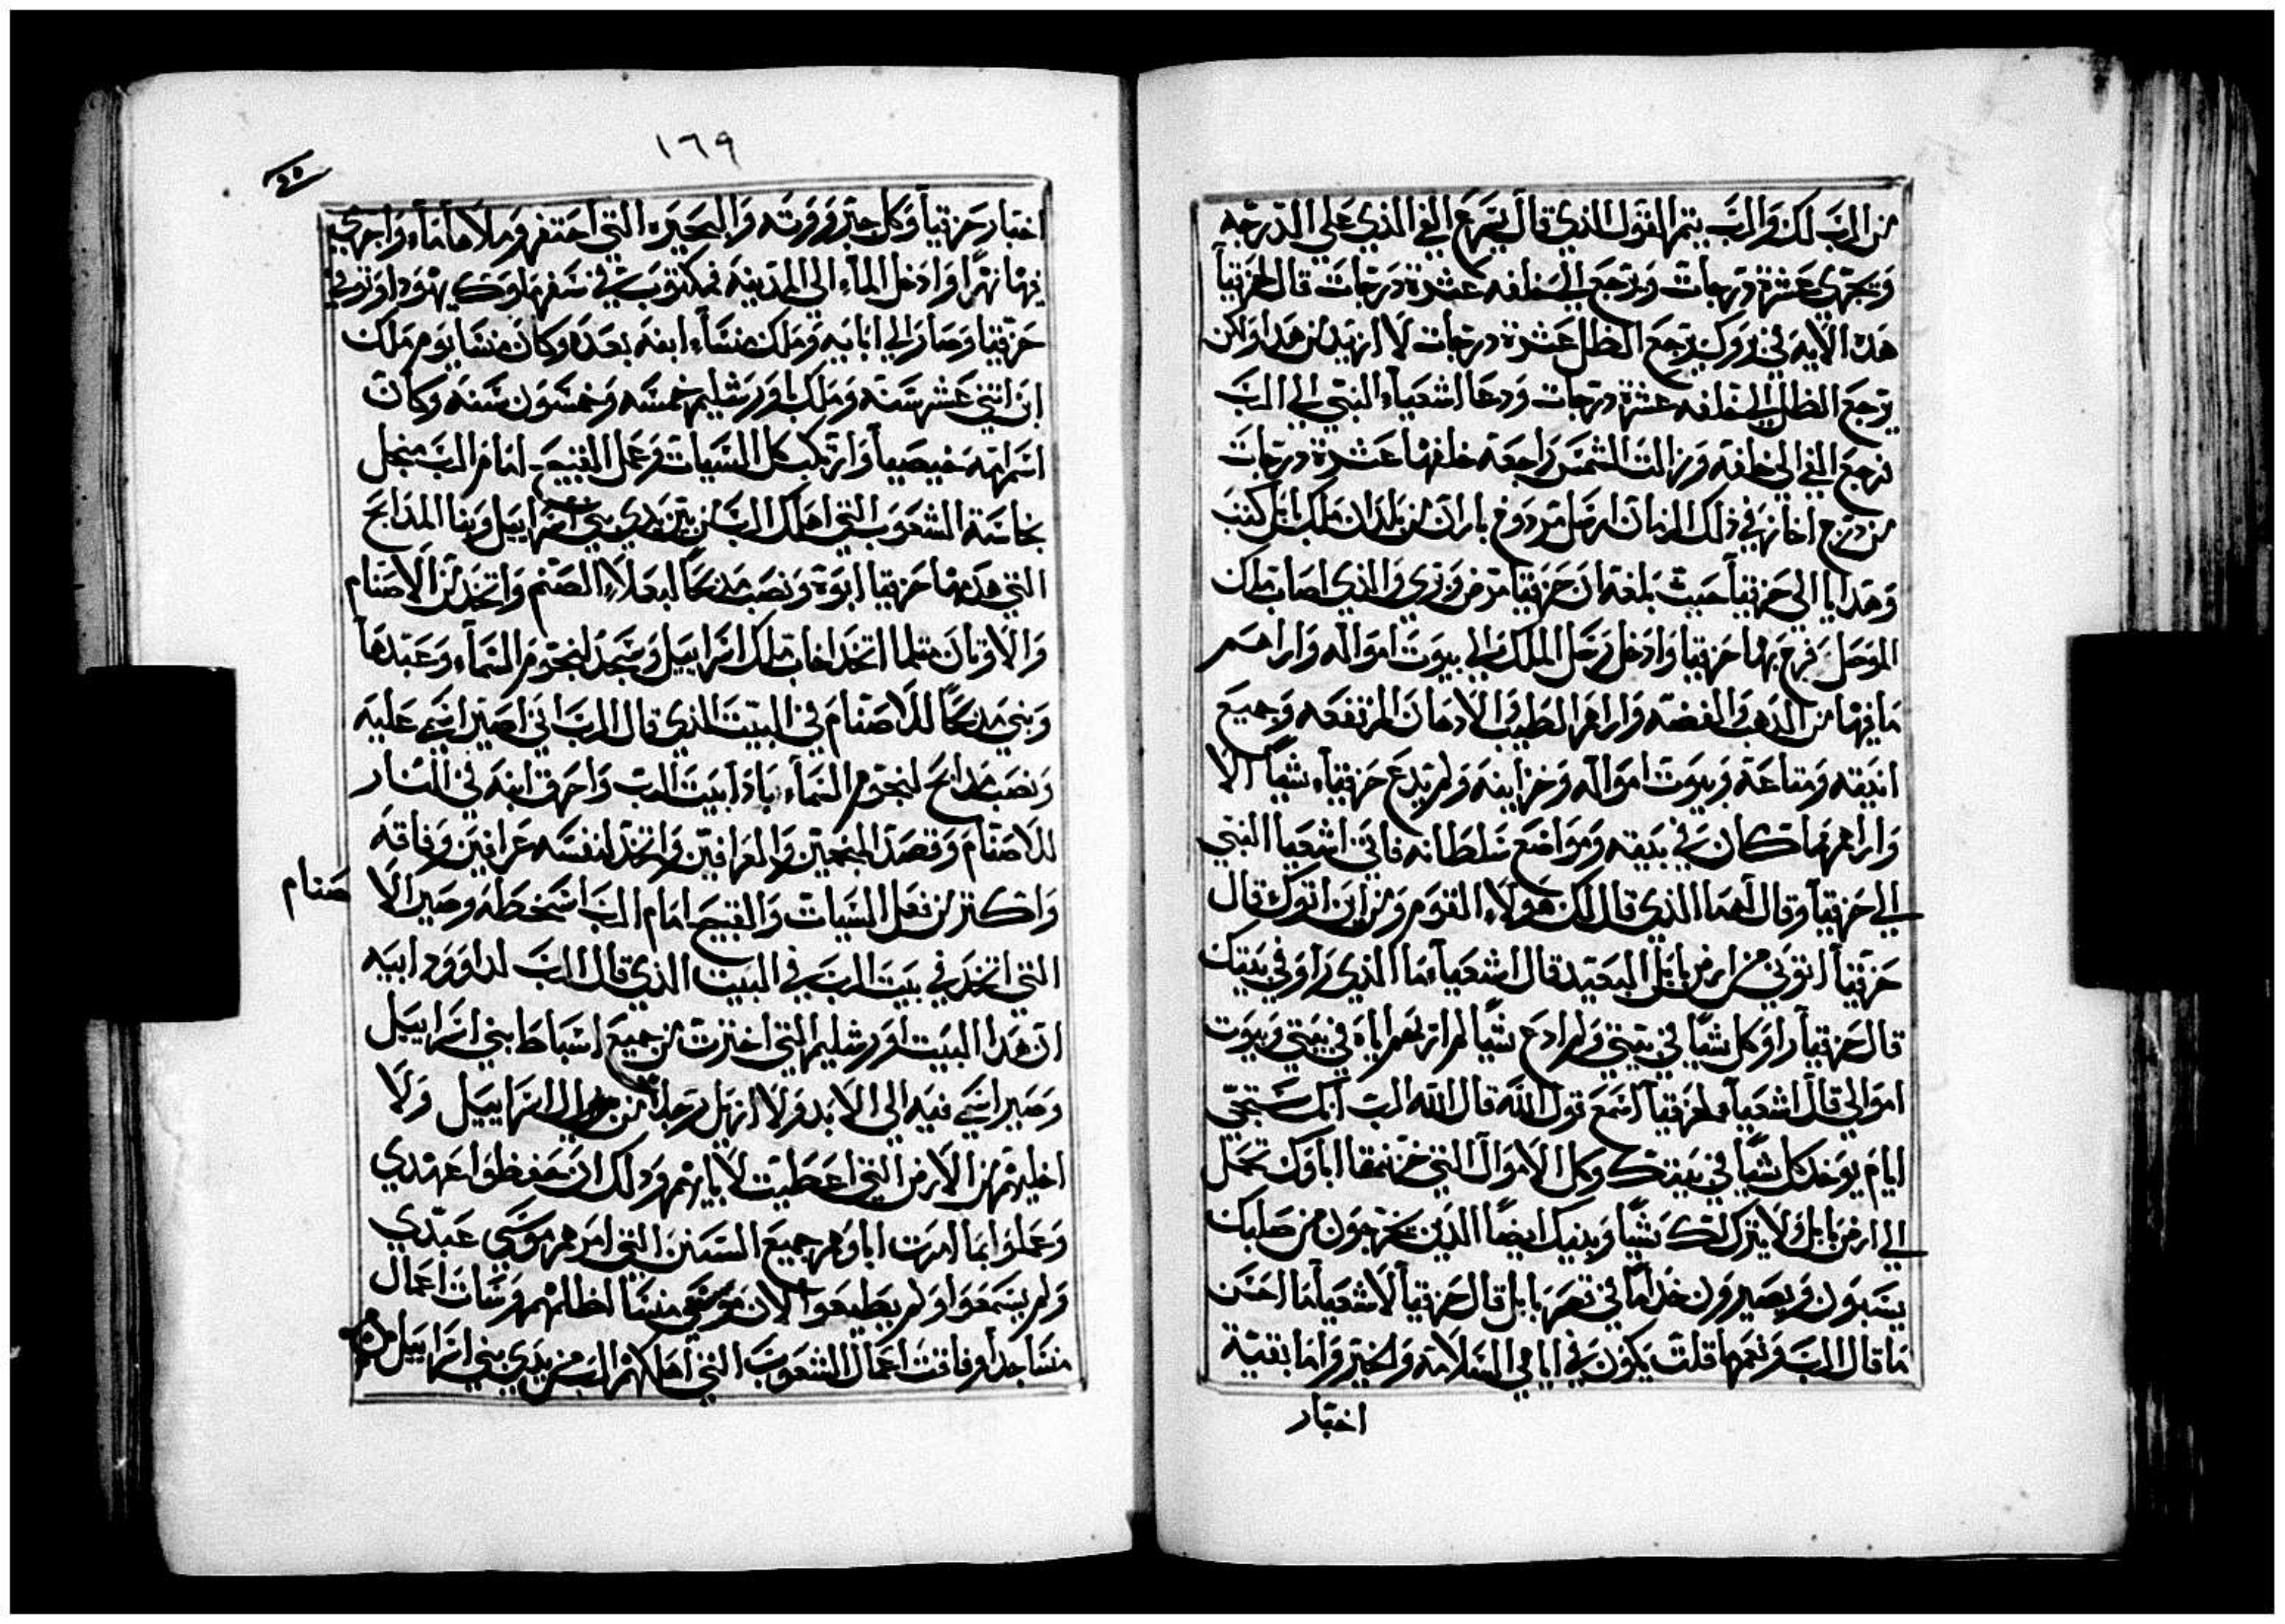 من الرب لك والرب يتم القول الذي قال يرجع الفي الذي علي الدرجه
ويجري عشرة درجات ويرجع الي خلفه عشرة درجات قال حزقيا
هذه الايه في يرجع الظل عشرة درجات لا اريد من هذا ولكن
يرجع الظل الي خلفه عشرة درجات ودعا اشعياء النبي الي الرب
فرجع الفي الي خلفه وزالت الشمس راجعه خلفها عشرة درجات
من درج اخاز في ذلك الزمان ارسل مردوخ باران بن بلدان ملك بابل كتب
وهدايا الي حزقيا حيث بلغه ان حزقيا مرض وبري والذي اصاب ملك
الموصل ففرح بها حزقيا وادخل رسل الملك الي بيوت امواله واراهم
ما فيها من الذهب والفضه واراهم الطيب والادهان المرتفعه وجميع
انيته ومتاعة وبيوت امواله وخزاينه ولم يدع حزقياء شياً الا
واراهم ما كان في بيته ومواضع سلطانه فاتي اشعيا النبي
الي حزقيا وقال لهما الذي قال لك هولاء القوم ومن اين اتوك قال
حزقيا اتوني من ارض بابل البعيد قال اشعياء ما الذي راو في بيتك
قال حزقيا راو كل شيا في بيتي ولم ادع شيا لم اريهم اياه في بيتي وبيوت
اموالي قال اشعياء لحزقيا اسمع قول الله قال الله الرب انك ستجي
ايام يوخد كل شيا في بيتك وكل الاموال التي خزنها اباوك تحمل
الي ارض بابل ولا يترك لك شيا وبنيك ايضا الذين يخرجون من صلبك
يسبون ويصيرون خداما في قصر بابل قال حزقيا لاشعيا ما احسن
ما قال الرب ونعم ما قلت يكون في ايامي السلامه والخير واما بقية
اخبار
١٦٩
اخبار حزقيا وكل جبروته والبحيره التي احتفر وملاها ماء واجري
فيها نهرا وادخل الماء الي المدينه فمكتوب في سفر ملوك يهودا وتوفي
حزقيا وصار الي ابايه وملك منشاء ابنه بعده وكان منشا يوم ملك
ابن اثني عشر سنه وملك باورشليم خمسه وخمسون سنه وكان
اسم امه حفيصيا وارتكب كل السيات وعمل القبيح امام الرب
بنجاسة الشعوب التي اهلك الرب من بين يدي بني اسراييل وبنا المدابح
التي هدمها حزقيا ابوه ونصب مدبحا لبعلاء الصنم واتخد من الاصنام
والاوثان مثلما اتخد اخاب ملك اسراييل وسجد لنجوم السماء وعبدها
وبني مدبحا للاصنام في البيت الذي قال الرب اني اصير اسمي عليه
ونصب مدابح لنجوم السماء باداً بيت الرب واحرق ابنه في النار
للاصنام وقصد المنجمين والعرافين واتخد لنفسه عرافين وفاقه
واكثر من فعل السيات والقبيح امام الرب اسخطه وصير الا صنام
التي اتخد في بيت الرب في البيت الذي قال الرب لداوود ابيه
ان هدا البيت اورشليم التي اخترت من جميع اسباط بني اسراييل
وصير اسمي فيه الي الابد ولا ازيل رجل من اسراييل ولا
اخليهم من الارض التي اعطيت لاباييهم ودلك ان حفظوا عهدي
وعملوا بما امرت اباوهم جميع السنن التي امرهم موسي عبدي
ولم يسمعوا ولم يطيعوا لان منسا اظلهم وسات اعمال
منسا جدا وفاقت اعمال الشعوب التي اهلاكهم الرب من يدي بني اسراييل